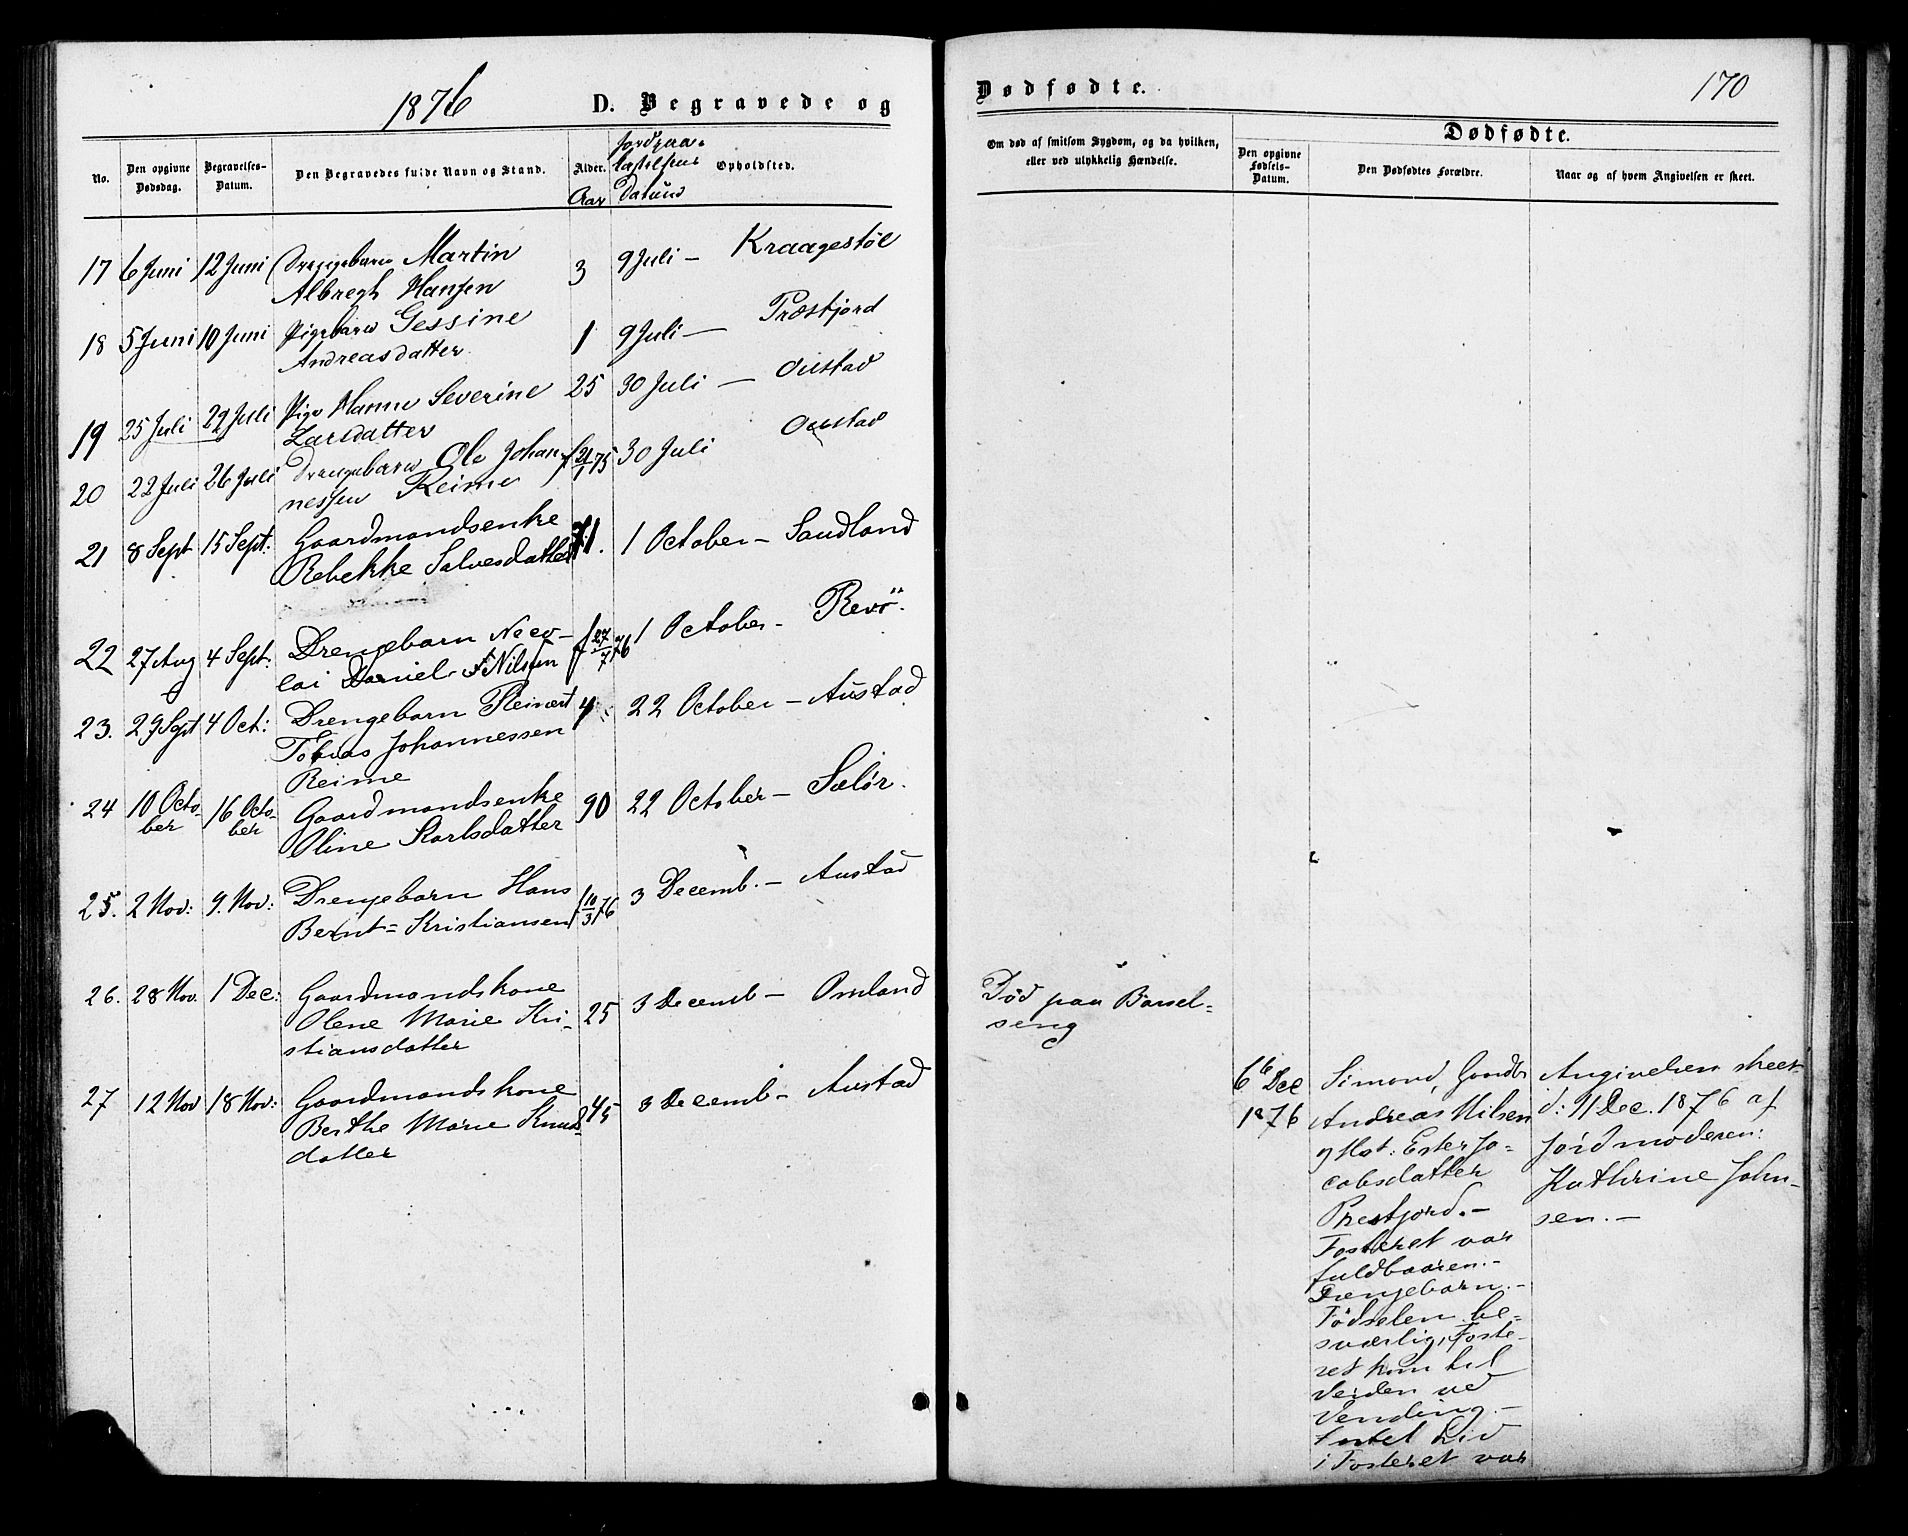 1876 D. Begravede og
No. Den opgivne Dødsdag. Begravelses-Datum. Den Begravedes fulde Navn og Stand. Alder. Aar Jordpaakastelsens Datum Opholdsted.
17 6 Juni 12 Juni Drengebarn Martin 3 9 Juli – Kraagestøl
Albregh Hansen
18 5 Juni 10 Juni Pigebarn Gessine 1 9 Juli – Præstfjord
Andreasdatter
19 25 Juli 29 Juli Pige Hanne Severine 25 30 Juli – Oustad
Larsdatter
20 22 Juli 26 Juli Drengebarn Ole Johan- f 21/1 75 30 Juli Oustad
nessen Reime
21 8 Sept 15 Sept: Gaardmandsenke 71. 1 October – Sandland
Rebekke Salvesdatter
22 27 Aug 4 Sept: Drengebarn f 27/7 76 1 October – Revö.
lai Daniel Nilsen
23. 29 Sept 4 Oct: Drengebarn Reinert 4 22 October – Austad
Tobias Johannessen
Reime
24 10 Octo- 16 Octo- Gaardmandsenke 90 22 October – Selör.
ber ber Oline Karlsdatter
25. 2 Nov: 9. Nov: Drengebarn Hans f 10/3 76 3 Decemb. – Austad
Bernt = Kristiansen
26. 28 Nov. 1 Dec: Gaardmandskone 25 3 Decemb – Omland
Olene Marie Kri-
stiansdatter
27 12 Nov 18 Nov: Gaardmandskone 45 3 Decemb – Austad
Berthe Marie Knuds-
datter
Dødfødte. 170
Om død af smitsom Sygdom, og da hvilken,
eller ved ulykkelig Hændelse.
Dødfødte.
Den opgivne Fødsels-Datum. Den Dødfødtes Forældre. Naar og af hvem Angivelsen er skeet.
Död paa Barsel=
seng
6te Dec
1876
Simand,
Andreas Nilsen
og Hst: Ester Ja=
cobsdatter
Prestfjord. –
Fosteret var
fuldbaaren. –
Drengebarn. –
Födselen be-
sværlig, Foste-
ret kom til
Verden ved
Vending. –
Intet Liv
i Fosteret var
Angivelsen skeet
d: 11 Dec. 1876 af
Jordmoderen:
Kathrine John-
sen. –